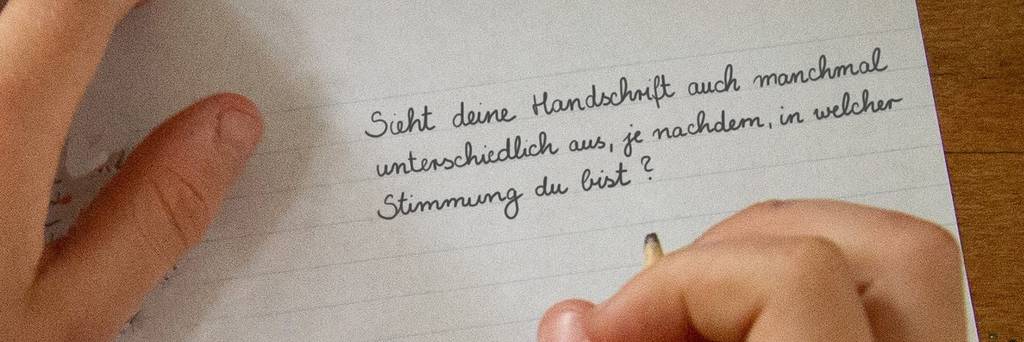 Sieht deine Handschrift auch manchmal
unterschiedlich aus, je nachdem, in welcher
Stimmung du bist?